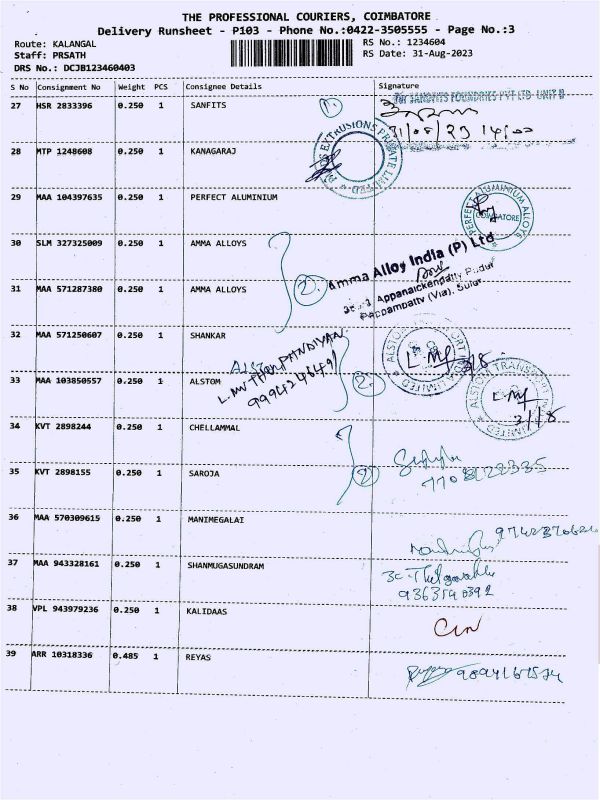 THE PROFESSIONAL COURIERS, COIMBATORE
Delivery Runsheet - P103 - Phone No.:0422-3505555 - Page No.:3
Route: KALANGAL RS No.: 1234604
Staff: PRSATH RS Date: 31-Aug-2023
DRS No.: DCJB123460403
S No Consignment No Weight PCS Consignee Details Signature
27 HSR 2833396 0.250 1 SANFITS 1.
31/08/23 14/00
28 MTP 1248608 0.250 1 KANAGARAJ EXTRUSIONS PRIVATE LIMITED
29 MAA 104397635 0.250 1 PERFECT ALUMINIUM
PERFECT ALUMINIUM ALLOYS COIMBATORE
30 SLM 327325009 0.250 1 AMMA ALLOYS
Amma Alloy India (P) Ltd
31 MAA 571287380 0.250 1 AMMA ALLOYS 2.
Appanaickenpatty Pudur
Pappampatty (Via), Sulur
32 MAA 571250607 0.250 1 SHANKAR
ALSTOM TRANSPORT LIMITED
33 MAA 103850557 0.250 1 ALSTOM 2.
L. MUTHUPANDIYAN
9994246491
ALSTOM TRANSPORT LIMITED
34 KVT 2898244 0.250 1 CHELLAMMAL
35 KVT 2898155 0.250 1 SAROJA 2
36 MAA 570309615 0.250 1 MANIMEGALAI
37 MAA 943328161 0.250 1 SHANMUGASUNDRAM
38 VPL 943979236 0.250 1 KALIDAAS
39 ARR 10318336 0.485 1 REYAS